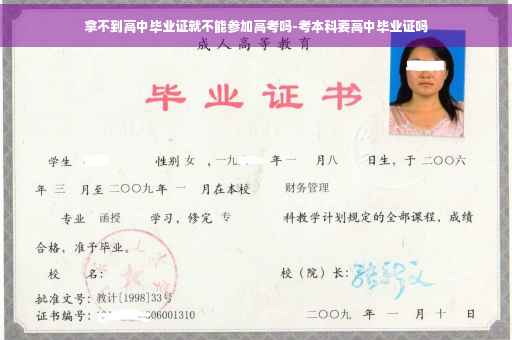 拿不到高中毕业证就不能参加高考吗-考本科要高中毕业证吗
成人高等教育
毕业证书
学生 性别 女 ,一九 年 一 月八 日生,于二〇〇六
年 三 月至二〇〇九年 一 月在本校 财务管理
专业 函授 学习,修完 专 科教学计划规定的全部课程,成绩
合格,准予毕业。
校 名: 校(院)长:
批准文号:教计[1998]33号
证书编号: 06001310 二〇〇九 年 一 月 十 日